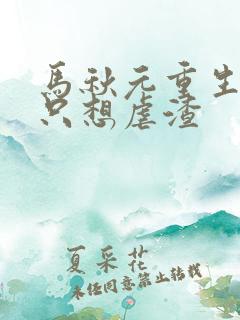 馬秋元重生
只想虐渣
夏采花
未经同意禁止转载